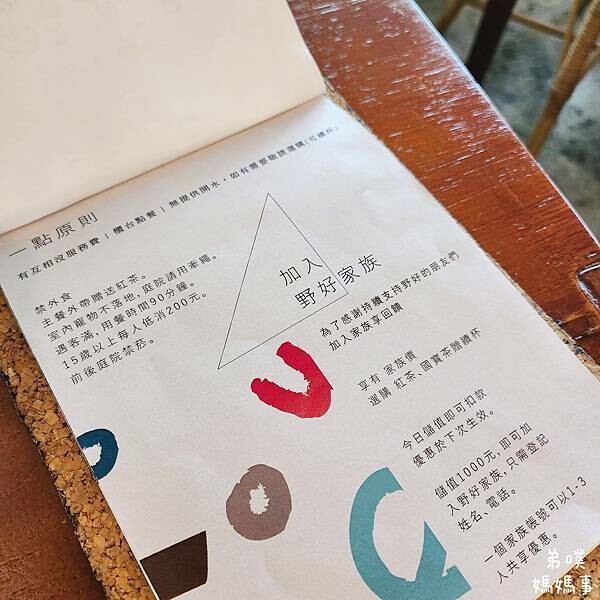 一點原則
有互相沒服務費 | 櫃台點餐 | 無提供開水，如有需要敬請選購(可續杯)
禁外食
主餐外帶贈送紅茶。
室內寵物不落地，庭院請用牽繩。
遇客滿，用餐時間90分鐘。
15歲以上每人低消200元。
前後庭院禁菸。
加入
野好家族
為了感謝持續支持野好的朋友們
加入家族享回饋
享有 家族價
選購 紅茶、國寶茶贈續杯
今日儲值即可扣款
優惠於下次生效。
儲值1000元，即可加
入野好家族，只需登記
姓名、電話。
一個家族帳號可以1-3
人共享優惠。
弟噗
媽媽事